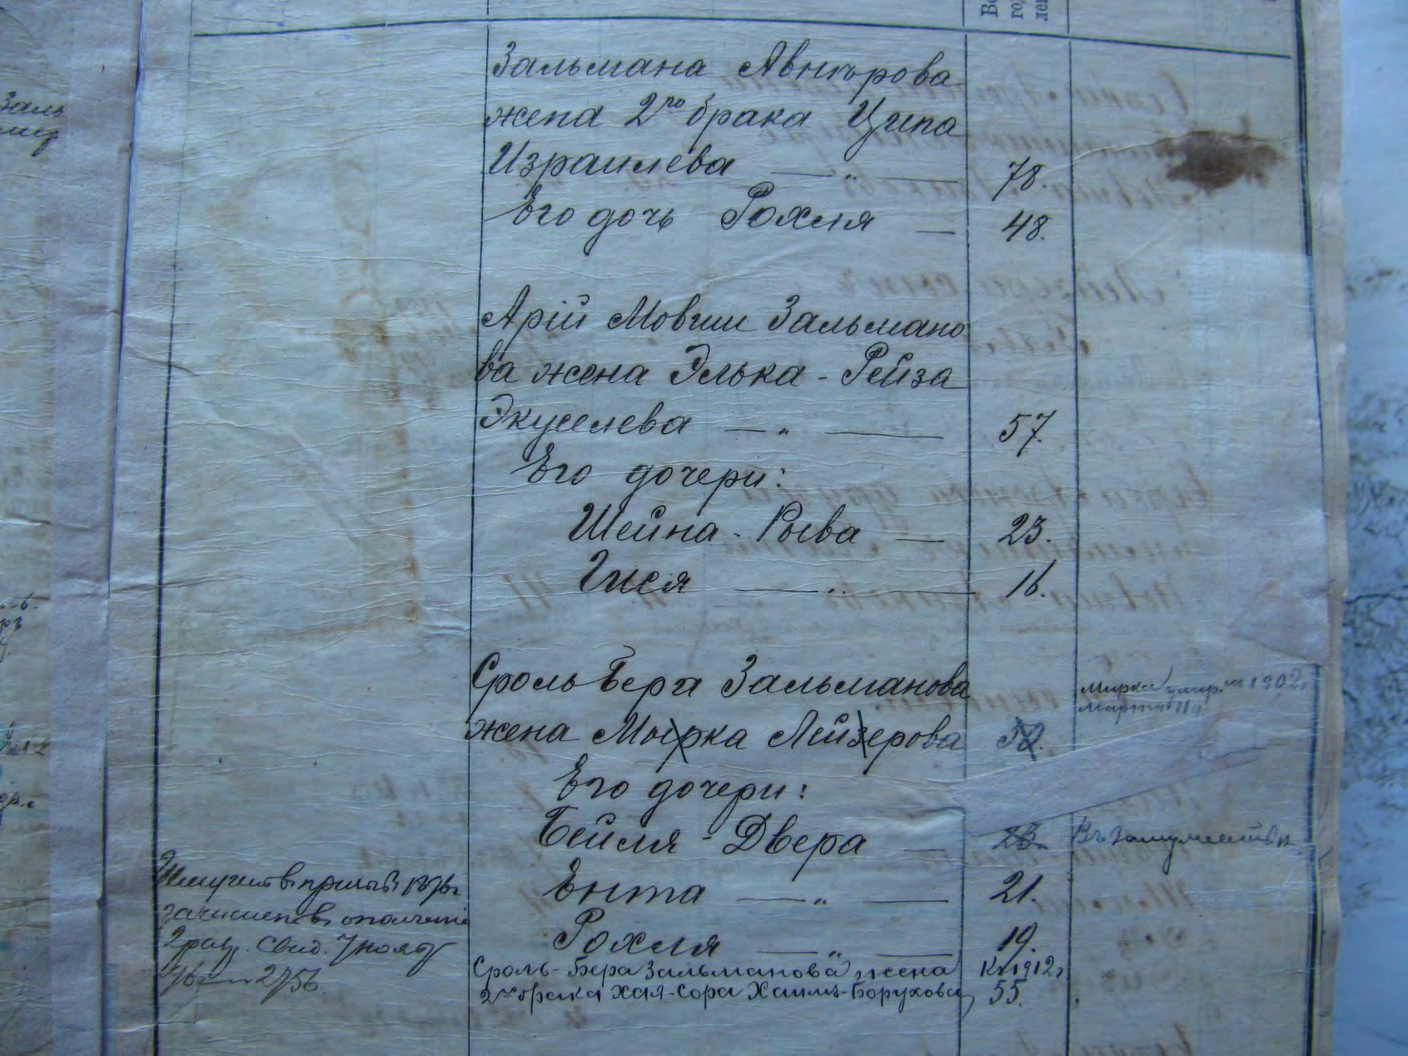 Зальмана Авнѣрова
жена 2го брака Ципа
Израилева — „ — 78.
Его дочь Рохля — 48.
Арій Мовши Зальмано
ва жена Элька - Рейза
Экуселева — „ — 57.
Его дочери:
Шейна - Рыва — 23.
Гися — „ — 16.
Сроль Бера Зальманова
Мирка умер. 1902
Марта 11
жена Мырка Лейзерова
Его дочери:
Бейля - Двера — 23. Въ замужествѣ
Ента — „ — 21.
Рохля — „ — 19.
призыв 1896
2 разр. Свид. 7 нояб
96 2756
Сроль-Бера Зальманова жена Къ 1912 г
2го брака Хая-Сора Хаимъ-Борухова, 55.